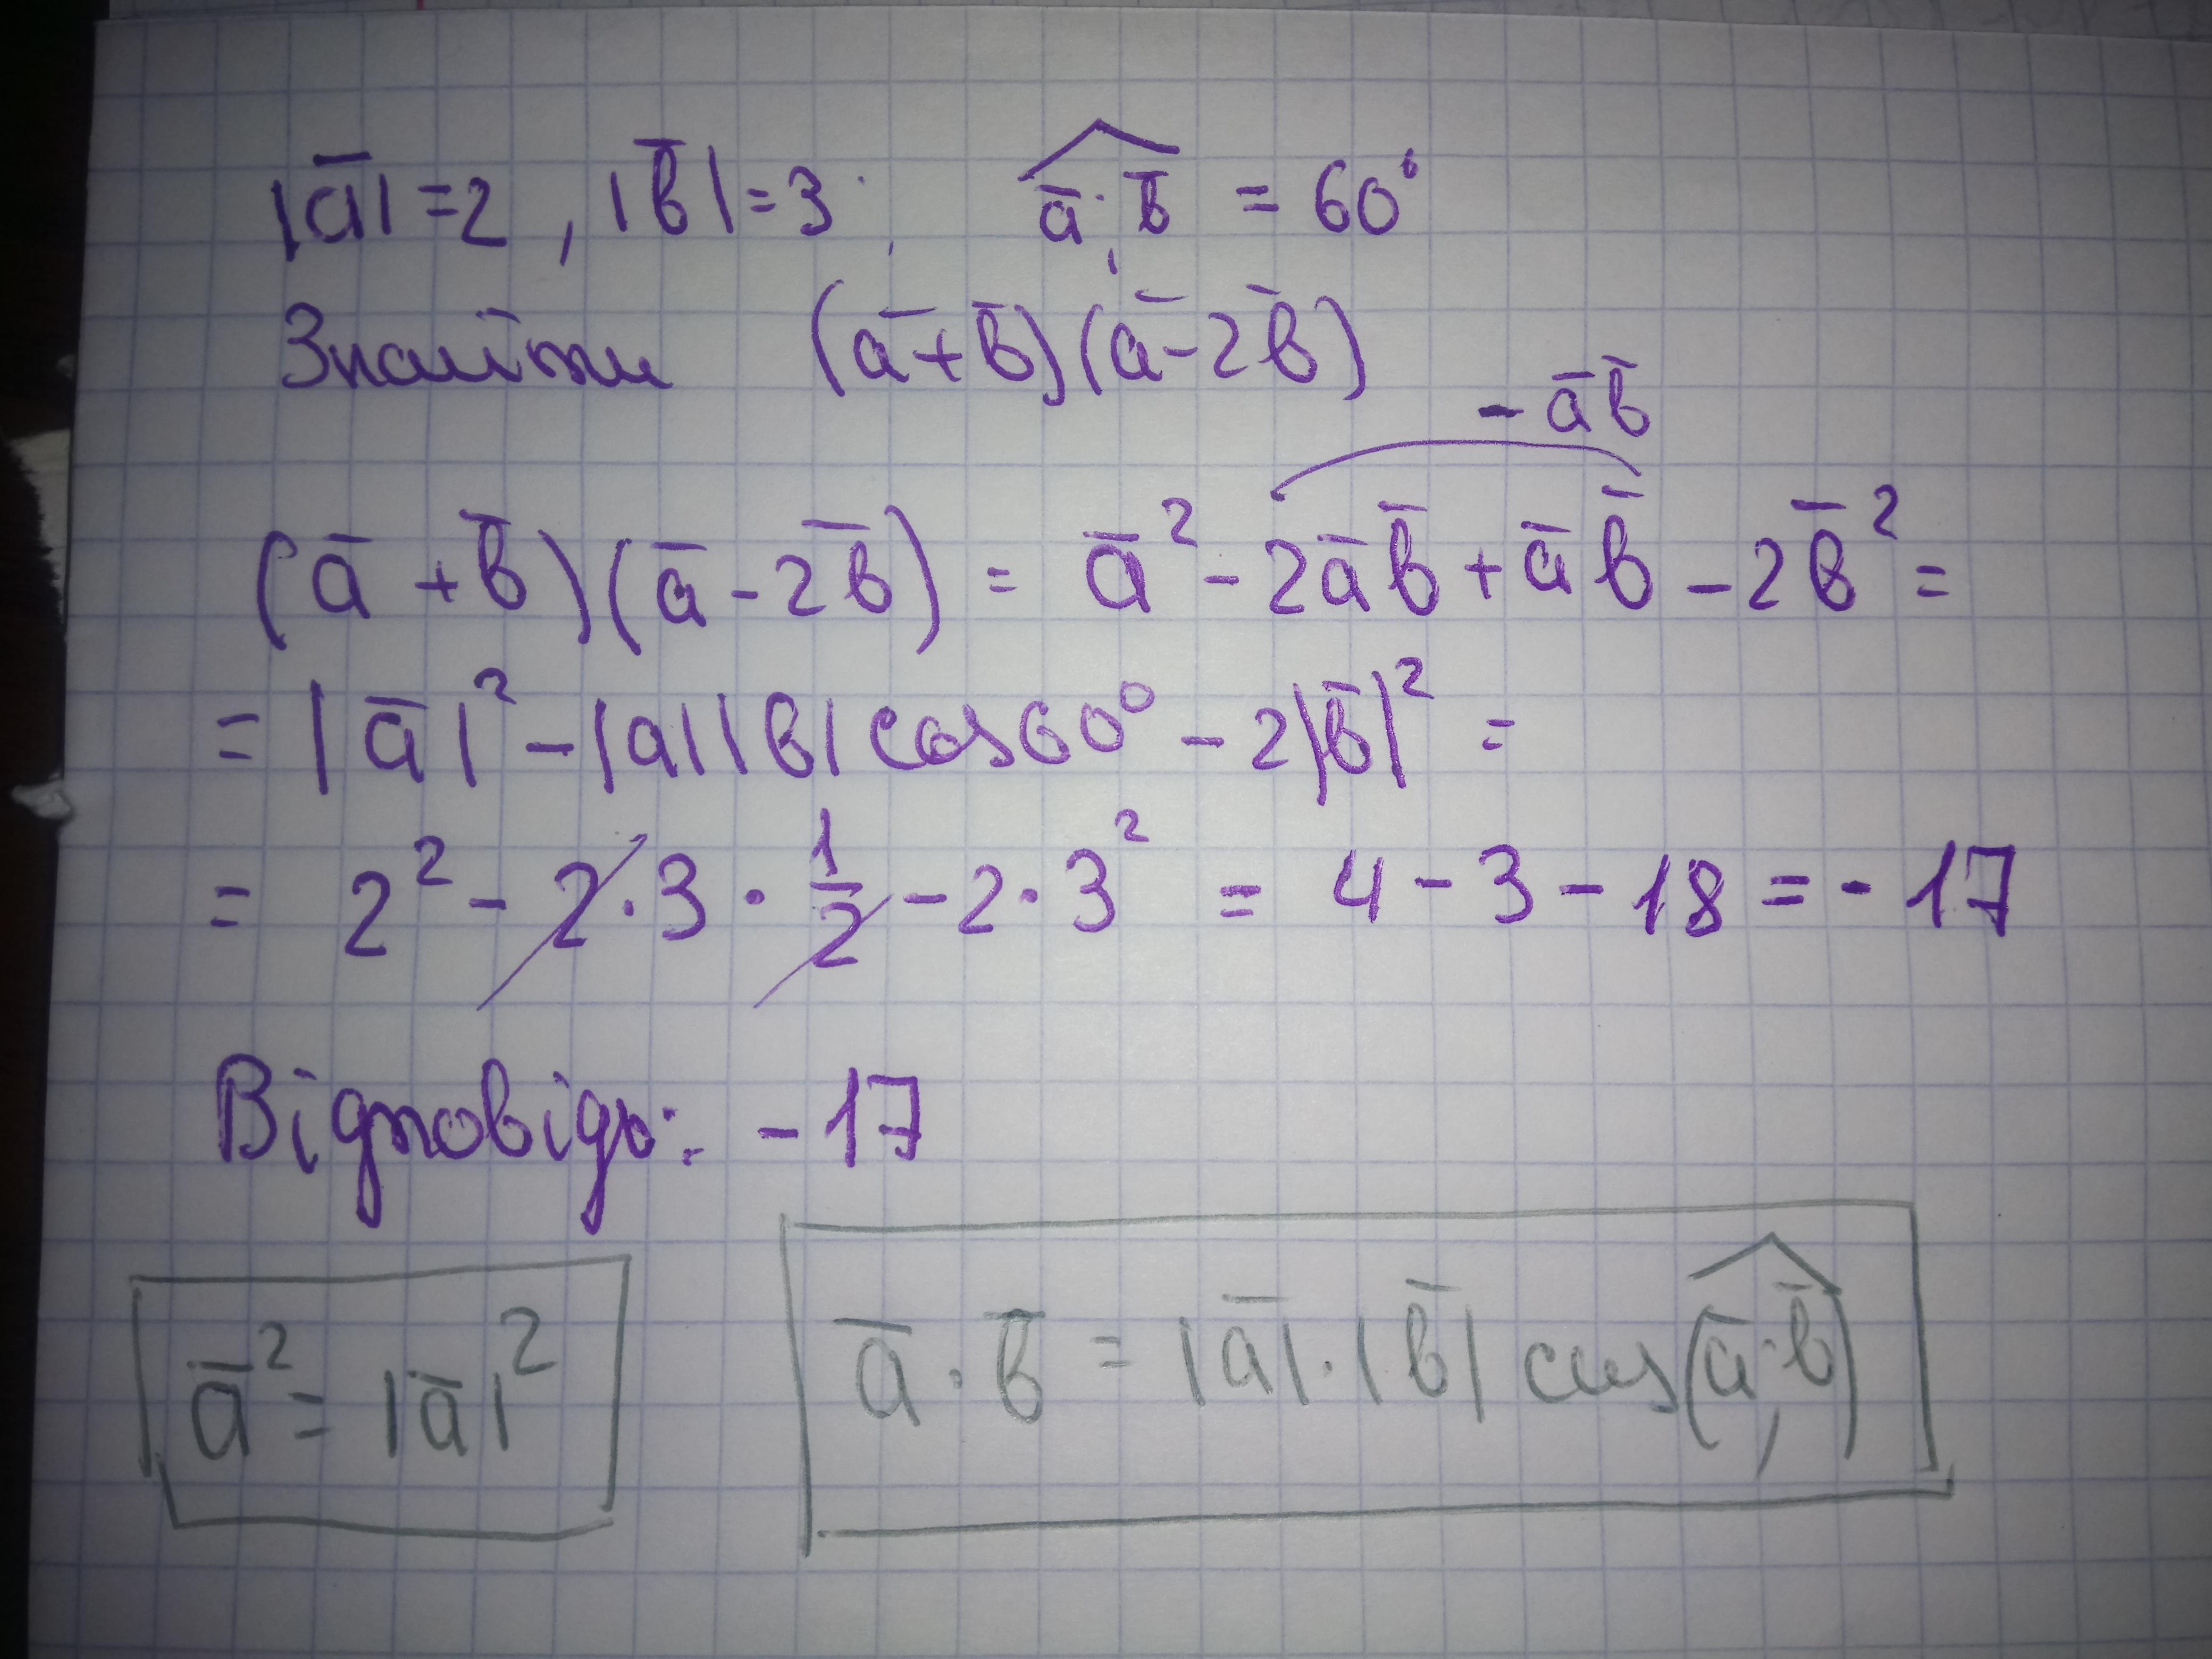 |a̅| = 2 , |b̅| = 3 , a̅,^b̅ = 60°
Знайти (a̅+b̅)(a̅-2b̅)
- a̅b̅
(a̅ + b̅)(a̅ - 2b̅) = a̅² - 2a̅b̅ + a̅b̅ - 2b̅² =
= |a̅|² - |a||b| cos60° - 2|b̅|² =
= 2² - 2·3 · 1/2 - 2·3² = 4 - 3 - 18 = - 17
Відповідь: - 17
a̅² = |a̅|² a̅ · b̅ = |a̅|·|b̅| cos(a̅,^b̅)